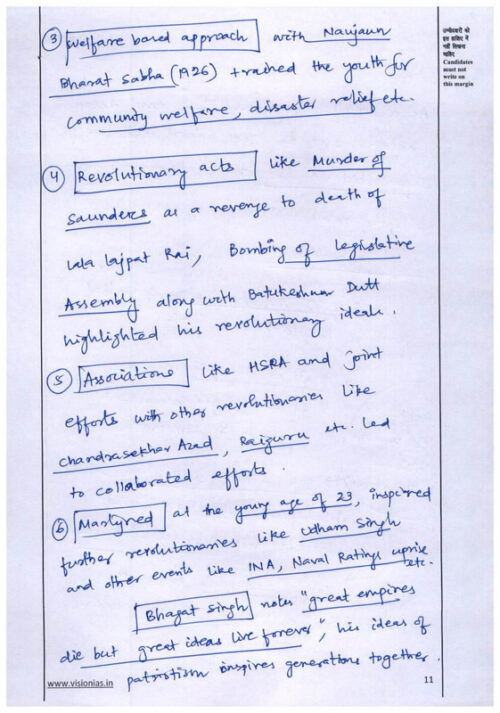 ③ Welfare based approach with Naujaun
Bharat Sabha (1926) trained the youth for
community welfare, disaster relief etc.
④ Revolutionary acts like Murder of
Saunders as a revenge to death of
Lala Lajpat Rai, Bombing of Legislative
Assembly along with Batukeshwar Dutt
highlighted his revolutionary ideals.
⑤ Associations like HSRA and joint
efforts with other revolutionaries like
Chandrasekhar Azad, Rajguru etc. led
to collaborated efforts.
⑥ Martyred at the young age of 23, inspired
further revolutionaries like Udham Singh
and other events like INA, Naval Ratings uprise
etc.
Bhagat Singh notes "great empires
die but great ideas live forever", his ideas of
patriotism inspires generations together.
उम्मीदवारों को
इस हाशिए में
नहीं लिखना
चाहिए
Candidates
must not
write on
this margin
www.visionias.in
11